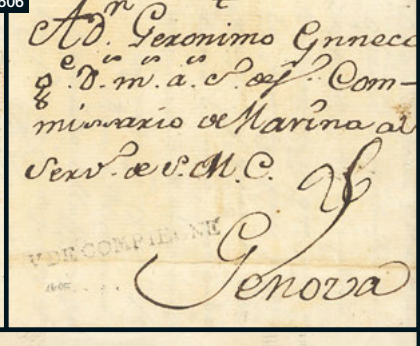 606
A D.n Geronimo Gnnecc
g.e D.s m.s a.s S.r de Com-
missario de Marina al
Serv.o de S. M. C.
V DE COMPIEGNE
Genova